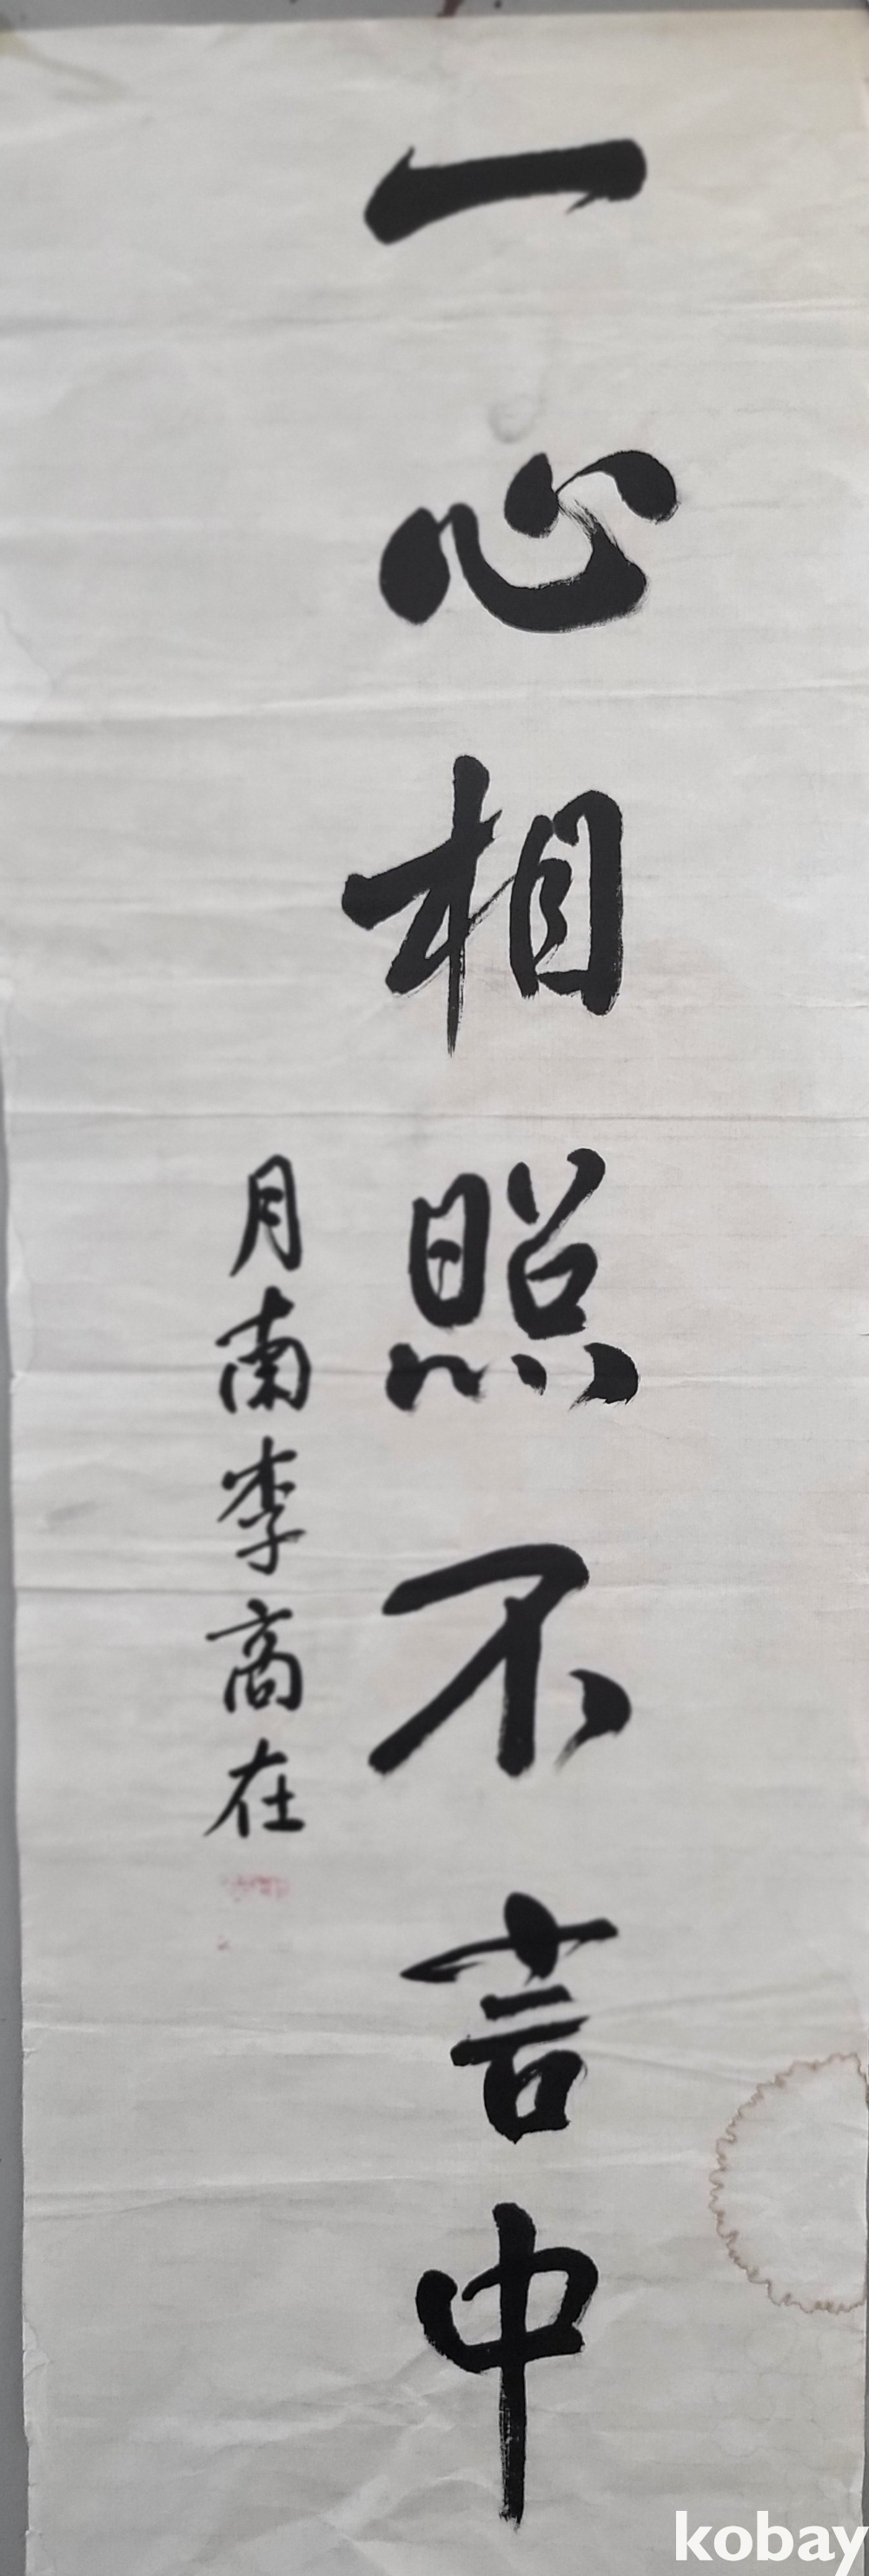 一心相照不言中
月南李商在
kobay